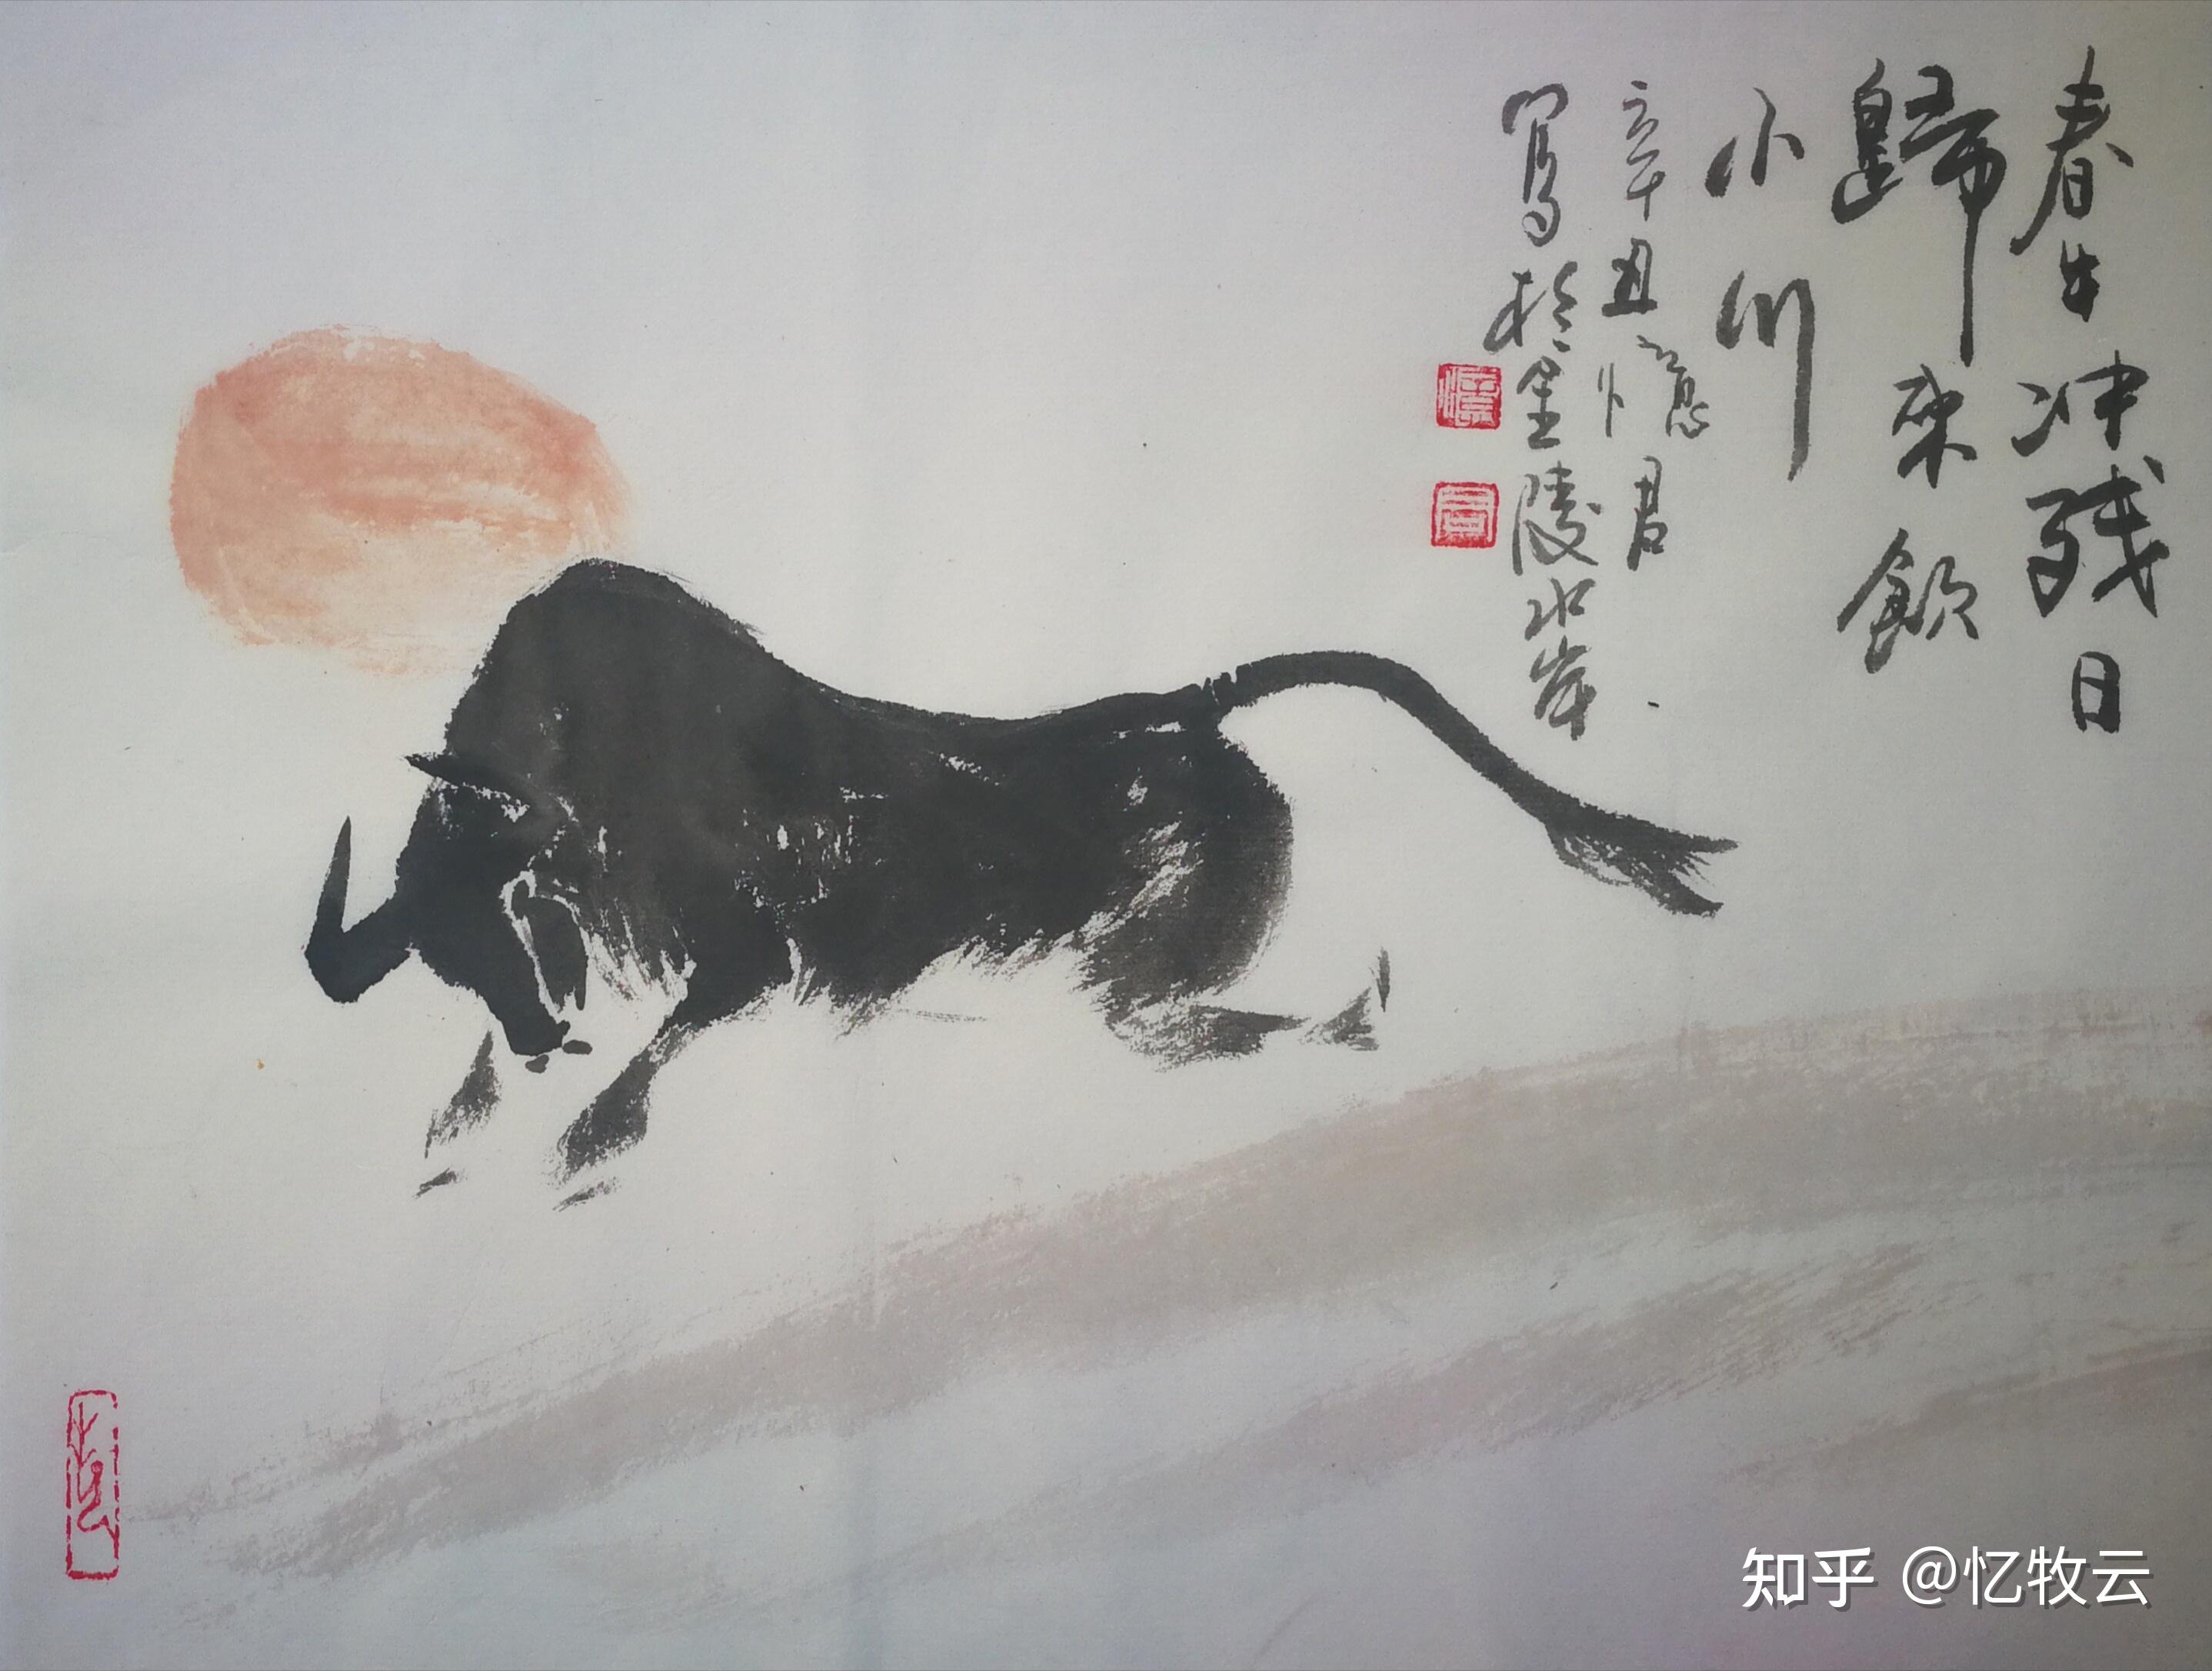 春牛冲残日
歸来飲
小川
辛丑憶君
寫於金陵水岸
知乎 @忆牧云